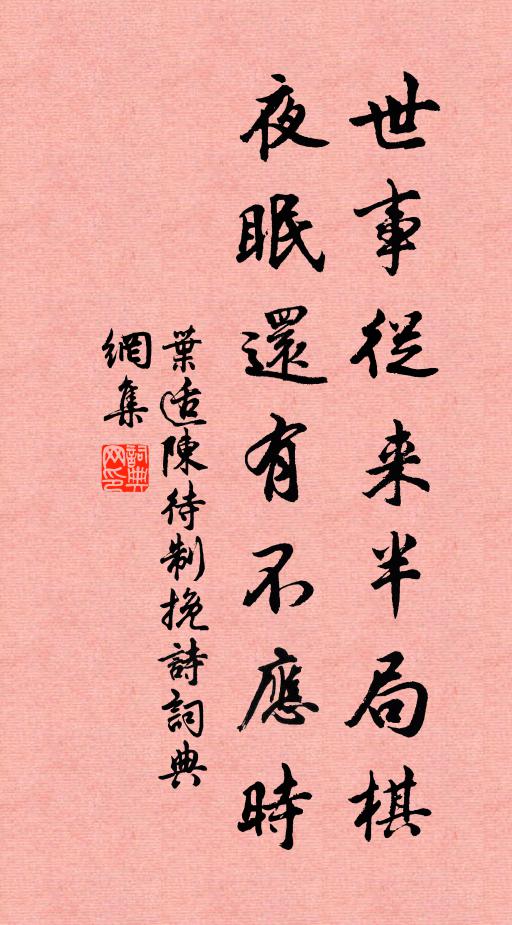 世事從来半局棋
夜眠還有不應時
葉适陳待制挽詩詞典
網集
詞典
网印